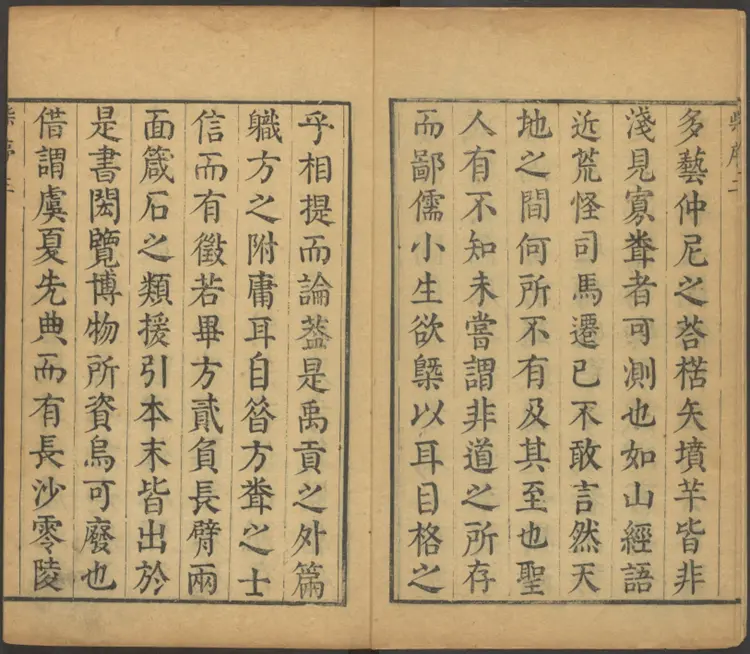 多藝仲尼之荅楛矢墳羊皆非
淺見寡聞者可測也如山經語
近荒怪司馬遷已不敢言然天
地之間何所不有及其至也聖
人有不知未嘗謂非道之所存
而鄙儒小生欲槩以耳目格之
乎相提而論葢是禹貢之外篇
職方之附庸耳自昝方聋之士
信而有徵若畢方貳負長臂兩
面箴石之類援引本末皆出於
是書閎覽博物所資烏可廢也
借謂虞夏先典而有長沙零陵